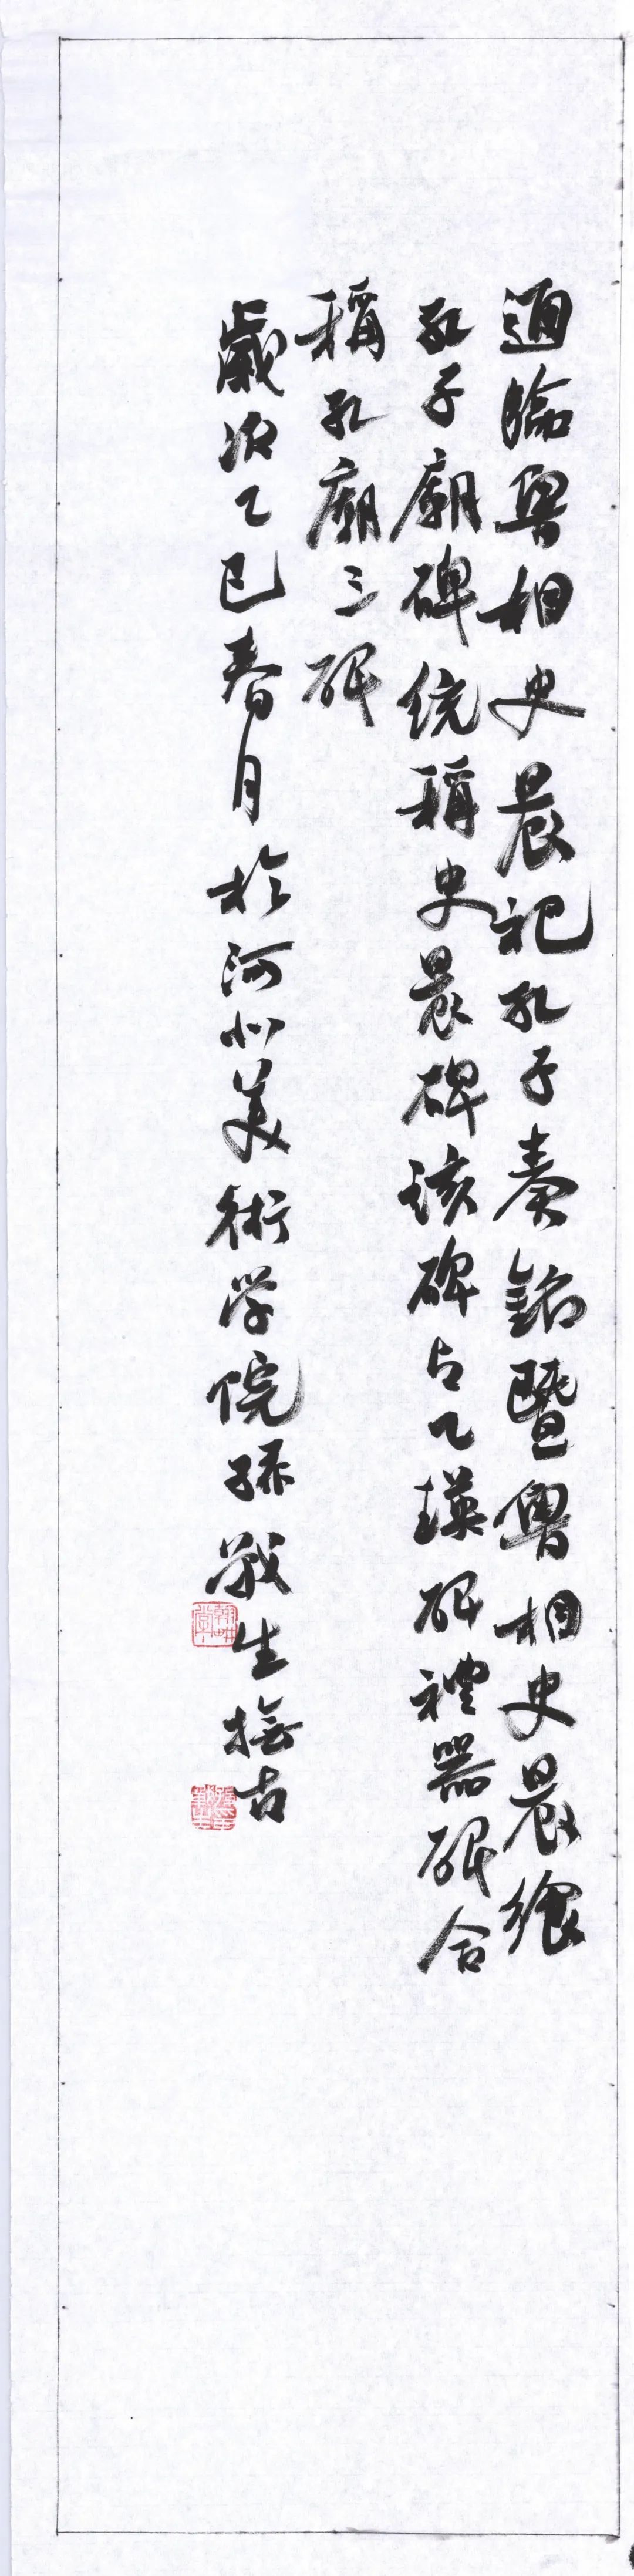 通臨魯相史晨祀孔子奏銘暨魯相史晨饗
孔子廟碑統稱史晨碑該碑与乙瑛碑禮器碑合
稱孔廟三碑
歲次乙巳春月於河北美術学院孫戰生撫古